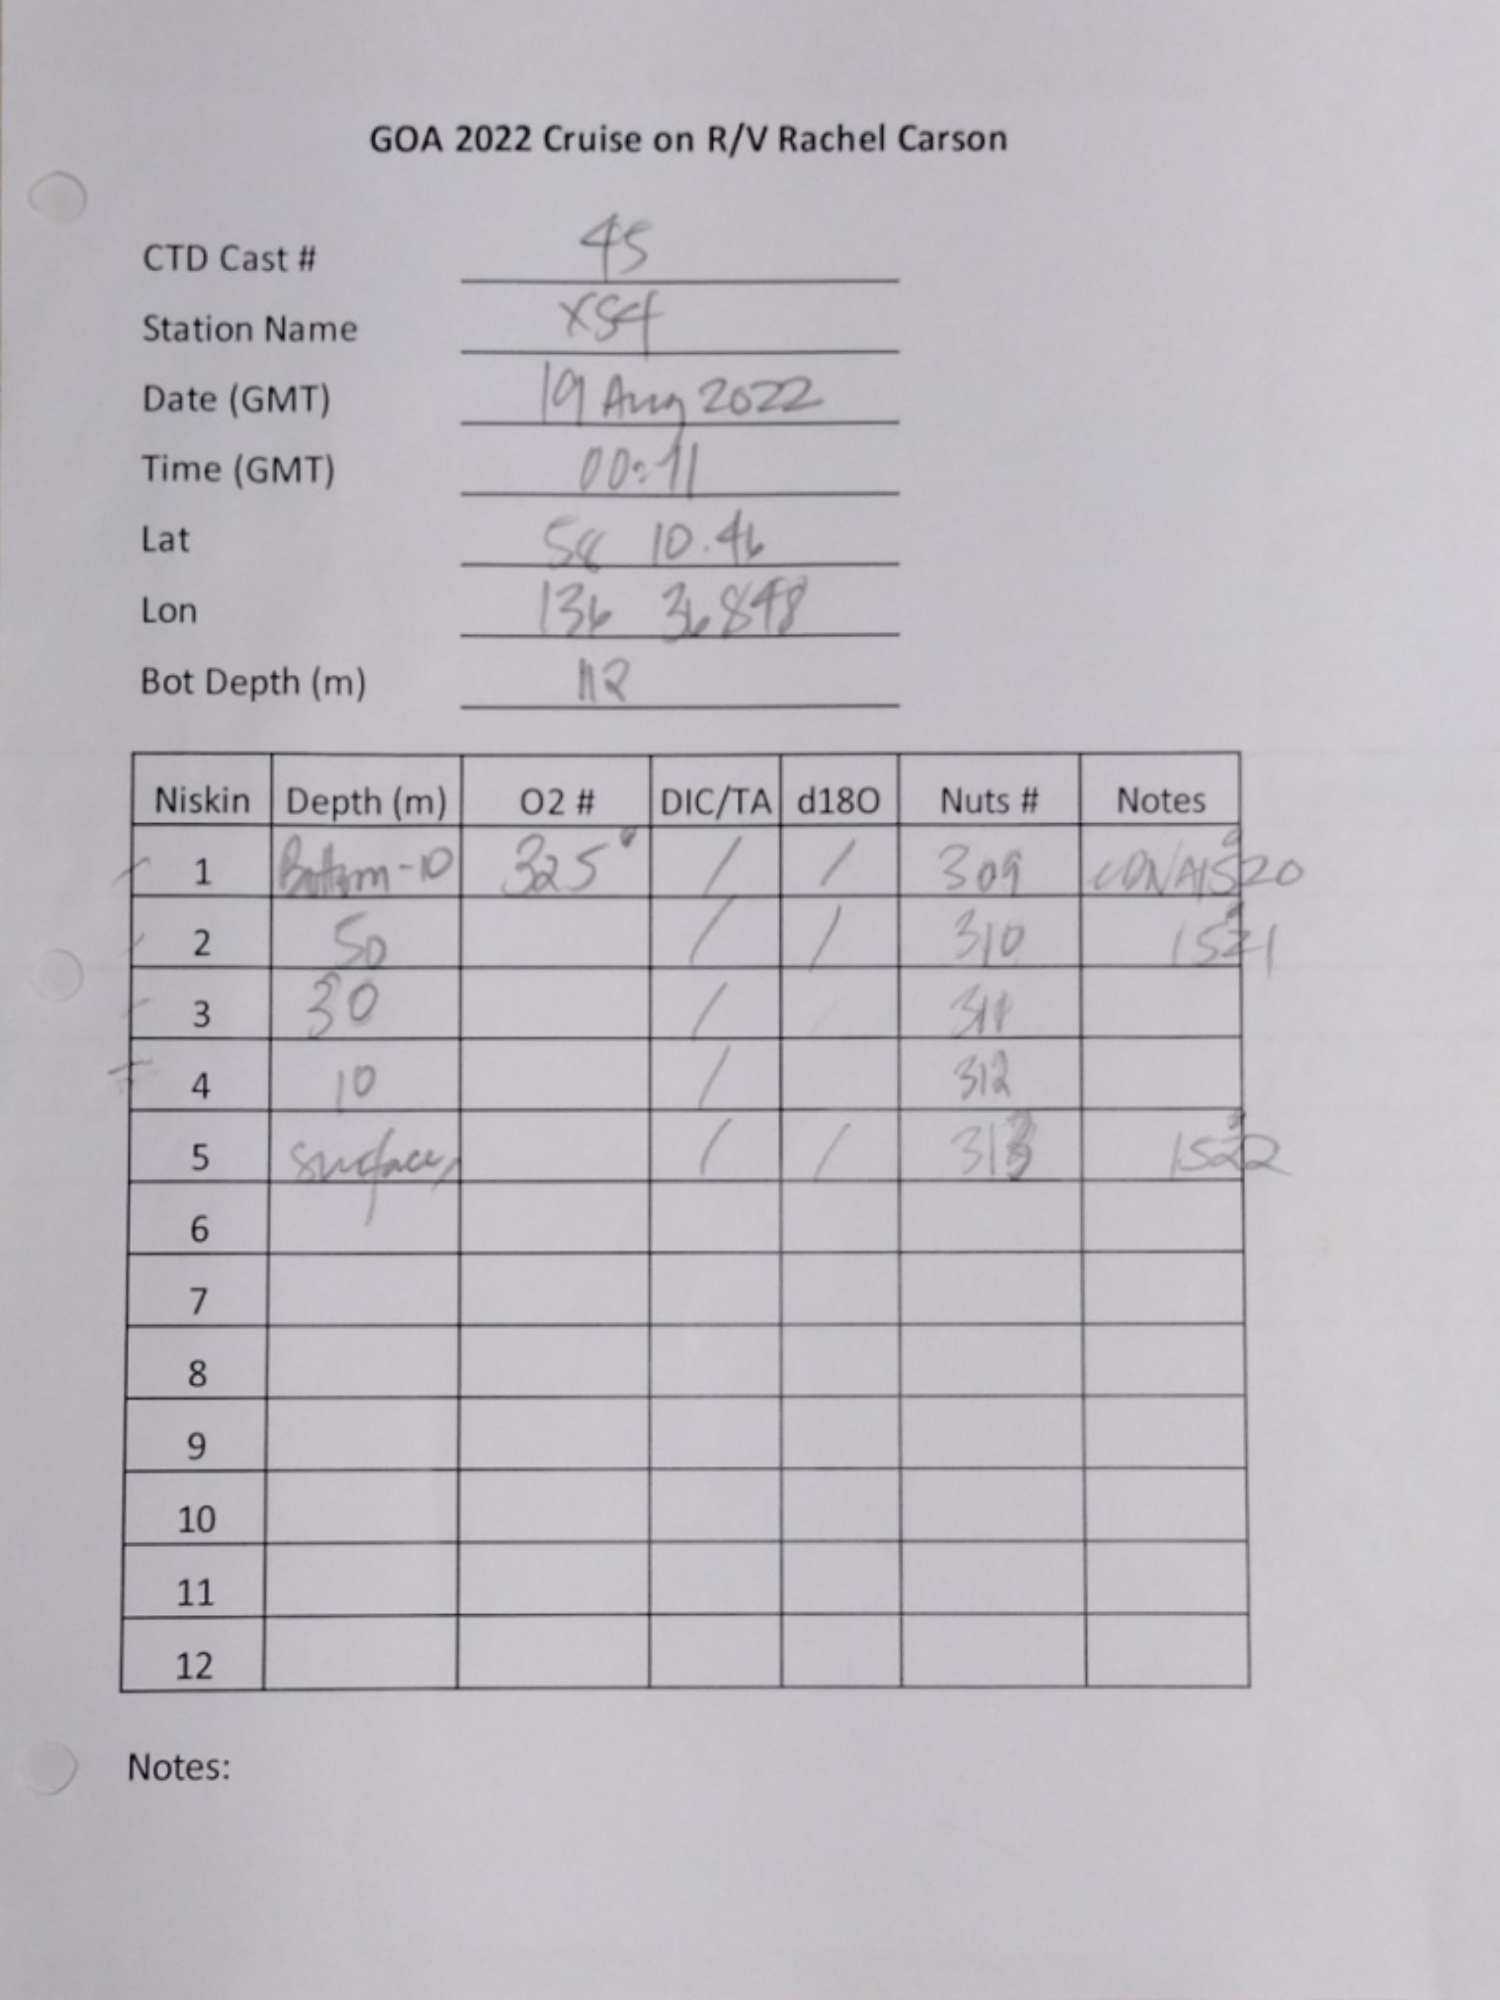 GOA 2022 Cruise on R/V Rachel Carson
CTD Cast # 45
Station Name XS4
Date (GMT) 19 Aug 2022
Time (GMT) 00:11
Lat 58 10.46
Lon 136 36.848
Bot Depth (m) 112
Niskin Depth (m) O2 # DIC/TA d18O Nuts # Notes
1 Bottom-10 325 / / 309 eDNA1520
2 50 / / 310 1521
3 30 / 311
4 10 / 312
5 surface / / 313 1522
6
7
8
9
10
11
12
Notes: